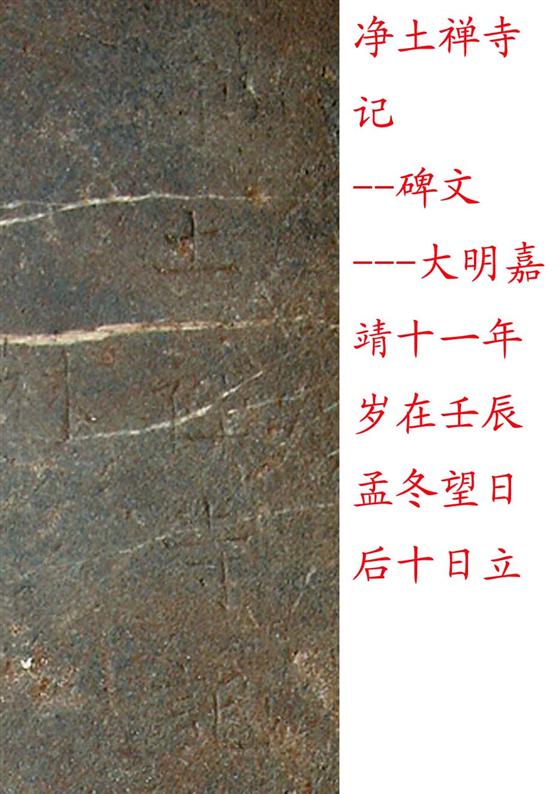 净土禅寺
记
--碑文
---大明嘉
靖十一年
岁在壬辰
孟冬望日
后十日立
土